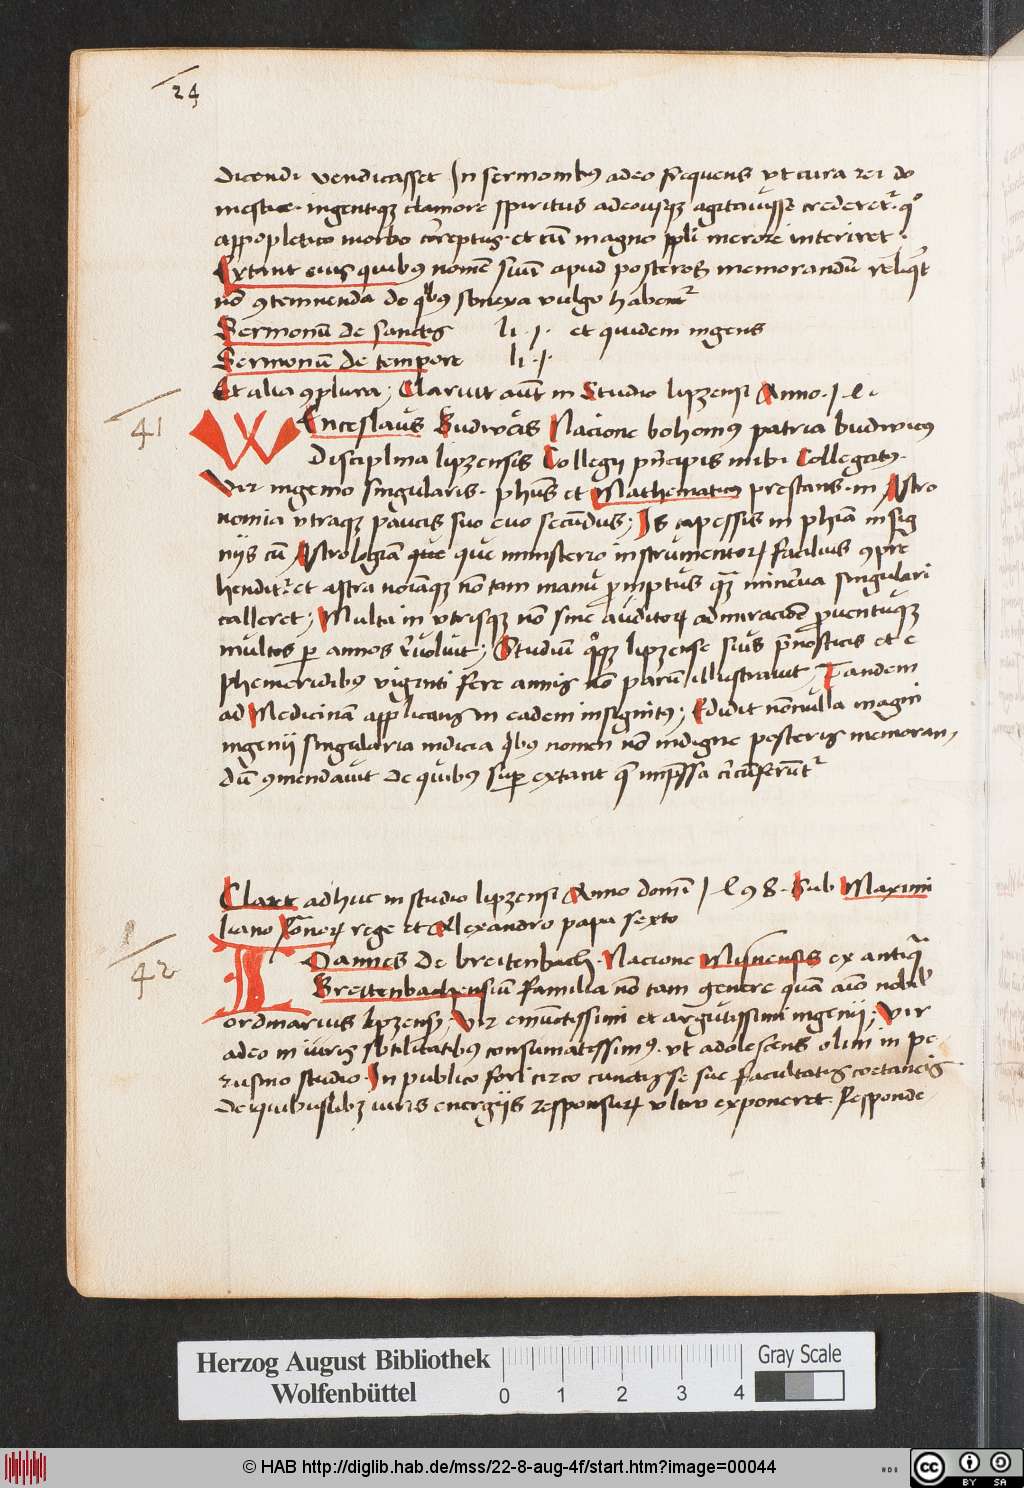 24
dicendi vendicasset In sermonibus adeo frequens vt cura rei do
mestice ingentiqz clamore spiritus adeousqz agitauisse crederetur qd
appopletico morbo correptus et cum magno ppli merore interiret.
Extant eius quibus nomen suum apud posteros memorandum reliquit
non contemnenda de quibus sbnexa vulgo habentur
Sermonum de sanctis li . j . et quidem ingens
Sermonum de tempore li . j .
Et alia complura; Claruit autem in Studio lipzensi Anno
41
WEnceslaus Budwcis Nacione bohemus patria budwicus
Disciplina lipzensis Collegij principis inibi Collegatus.
Vir ingenio singularis. phus et Mathematicus prestans. in Astro
nomia vtraqz paucis suo euo secundus; Is capessis in phia insig
nijs cum Astrologiam que que ministerio instrumentorum facilius compre
henditur et astra noiaqz non tam manu promptus quam minerua singulari
calleret; Multa in vtrisqz non sine auditorum admiracione prouentuqz
multos per annos reuoluit; Studium quoqz lipzense suis pronosticis et e
phemeridibus viginti fere annis non parum illustrauit, Tandem
ad Medicinam applicans in eadem insignitus; Edidit nonnulla magni
ingenij singularia indicia quibus nomen non indigne posteris memoran
dum commendauit de quibus super extant que impressa circumferuntur
Claret adhuc in studio lipzensi Anno domini 1 4 9 8. Sub Maximi
liano Romanorum rege et Alexandro papa sexto
42
IOannes de breitenbach. Nacione Mysnensis ex antiqua
Breittenbachensium familia non tam genere quam animo nobilis
ordinarius lipzensis; Vir emunctissimi et argutissimi ingenij; Vir
adeo in iuris sbtilitatibus consumatissimus. vt adolescens olim in pe
rusino studio. In publico fori circo cunctis se sue facultatis coetaneis
de quibuslibz iuris energijs responsurum vltro exponeret. Responde
Herzog August Bibliothek
Wolfenbüttel
0 1 2 3 4
Gray Scale
© HAB http://diglib.hab.de/mss/22-8-aug-4f/start.htm?image=00044
cc BY SA